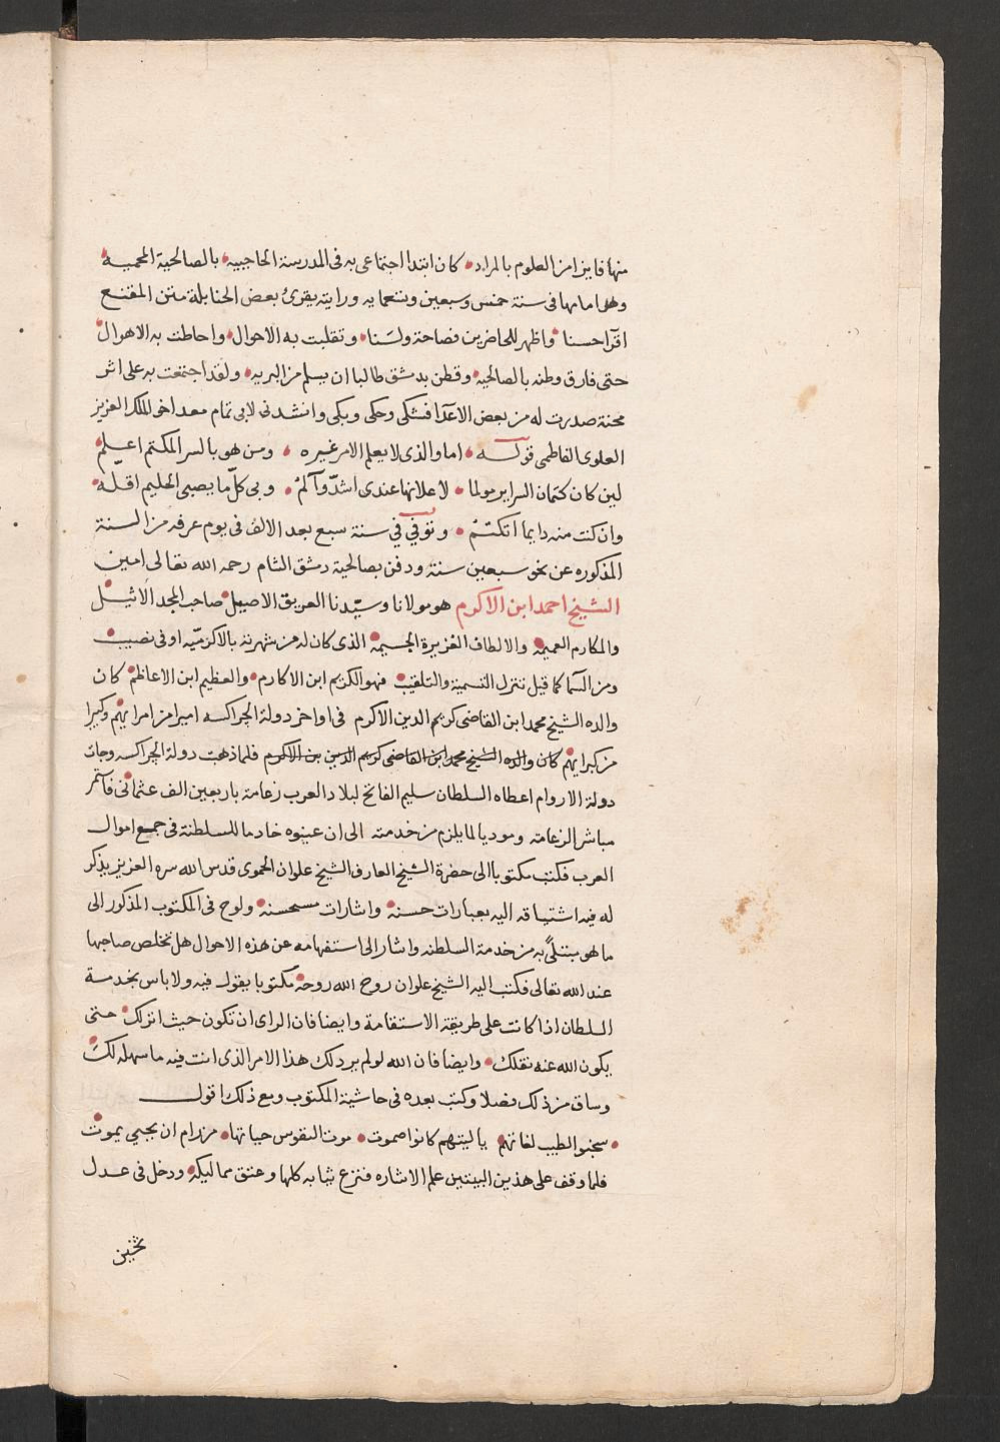 منها فايزا من العلوم بالمراد كان ابتدا اجتماعي به في المدرسة الحاجبيه بالصالحية المحميه
وهو امامها في سنة خمس وسبعين وتسعمايه ورايته يقرئ بعض الحنابلة متن المقنع
اقرآ حسنا واظهر للحاضرين فصاحة ولسنا وتقلبت به الاحوال واحاطت به الاهوال
حتى فارق وطنه بالصالحيه وقطن بدمشق طالبا ان يسلم من البريه ولقد اجتمعت به على اثر
محنة صدرت له من بعض الاعدآ فشكى وحكى وبكى وانشدني لابي تمام معد اخى الملك العزيز
العلوى الفاطمى قوله اما والذى لا يعلم الامر غيره ومن هو بالسر المكتم اعلم
لين كان كتمان السراير مولما لاعلانها عندى اشدّ وآلمُ وبى كلّ ما يصبى الحليم اقلّه
وان كنت منه دايما اتكتّمُ وتوفي في سنة سبع بعد الالف في يوم عرفه من السنة
المذكوره عن نحو سبعين سنة ودفن بصالحية دمشق الشام رحمه الله تعالى امين
الشيخ احمد ابن الاكرم هو مولانا وسيّدنا العريق الاصيل صاحب المجد الاثيل
والمكارم العميمه والالطاف الغزيرة الجسيمة الذى كان له من شهرته بالاكرميّه اوفى نصيب
ومن السما كما قيل تنزل التسمية والتلقيب فهو الكريم ابن الاكارم والعظيم ابن الاعاظم كان
والده الشيخ محمد ابن القاضى كريم الدين الاكرم في اواخر دولة الجراكسه اميرا من امرايهم وكبيرا
من كبرايهم كان والده الشيخ محمد ابن القاضى كريم الدين بن الاكرم فلما ذهبت دولة الجراكسه وجات
دولة الاروام اعطاه السلطان سليم الفاتح لبلاد العرب زعامة باربعين الف عثمانى فآستمر
مباشر الزعامة وموديا لما يلزم من خدمته الى ان عينوه خادما للسلطنة في جمع اموال
العرب فكتب مكتوبا الى حضرة الشيخ العارف الشيخ علوان الحموى قدس الله سره العزيز يذكر
له فيه اشتياقه اليه بعبارات حسنة واشارات مستحسنه ولوح في المكتوب المذكور الى
ما هو مبتلًى به من خدمة السلطنه واشار الى استفهامه عن هذه الاحوال هل تخلص صاحبها
عند الله تعالى فكتب اليه الشيخ علوان روح الله روحه مكتوبا يقول فيه ولا باس بخدمة
السلطان اذا كانت على طريقة الاستقامة وايضا فان الراى ان تكون حيث انزلك حتى
يكون الله عنه نقلك وايضا فان الله لو لم يرد لك هذا الامر الذى انت فيه ما سهله لك
وساق من ذلك فصلا وكتب بعده في حاشية المكتوب ومع ذلك اقول
سجنوا الطيب لغاتهم يا ليتهم كانوا صموت موت النفوس حياتها من رام ان يحيي يموت
فلما وقف على هذين البيتين علم الاشاره فنزع ثيابه كلها وعتق مماليكه ودخل في عدل